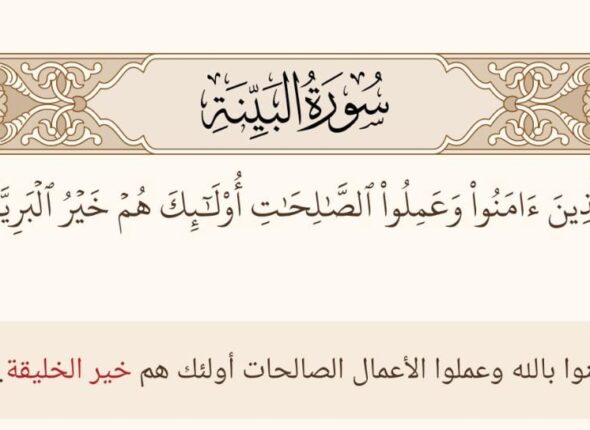 سُورَةُ البَيِّنَةِ
ذِينَ ءَامَنُوا۟ وَعَمِلُوا۟ ٱلصَّٰلِحَٰتِ أُو۟لَٰٓئِكَ هُمْ خَيْرُ ٱلْبَرِيَّ
نوا بالله وعملوا الأعمال الصالحات أولئك هم خير الخليقة.